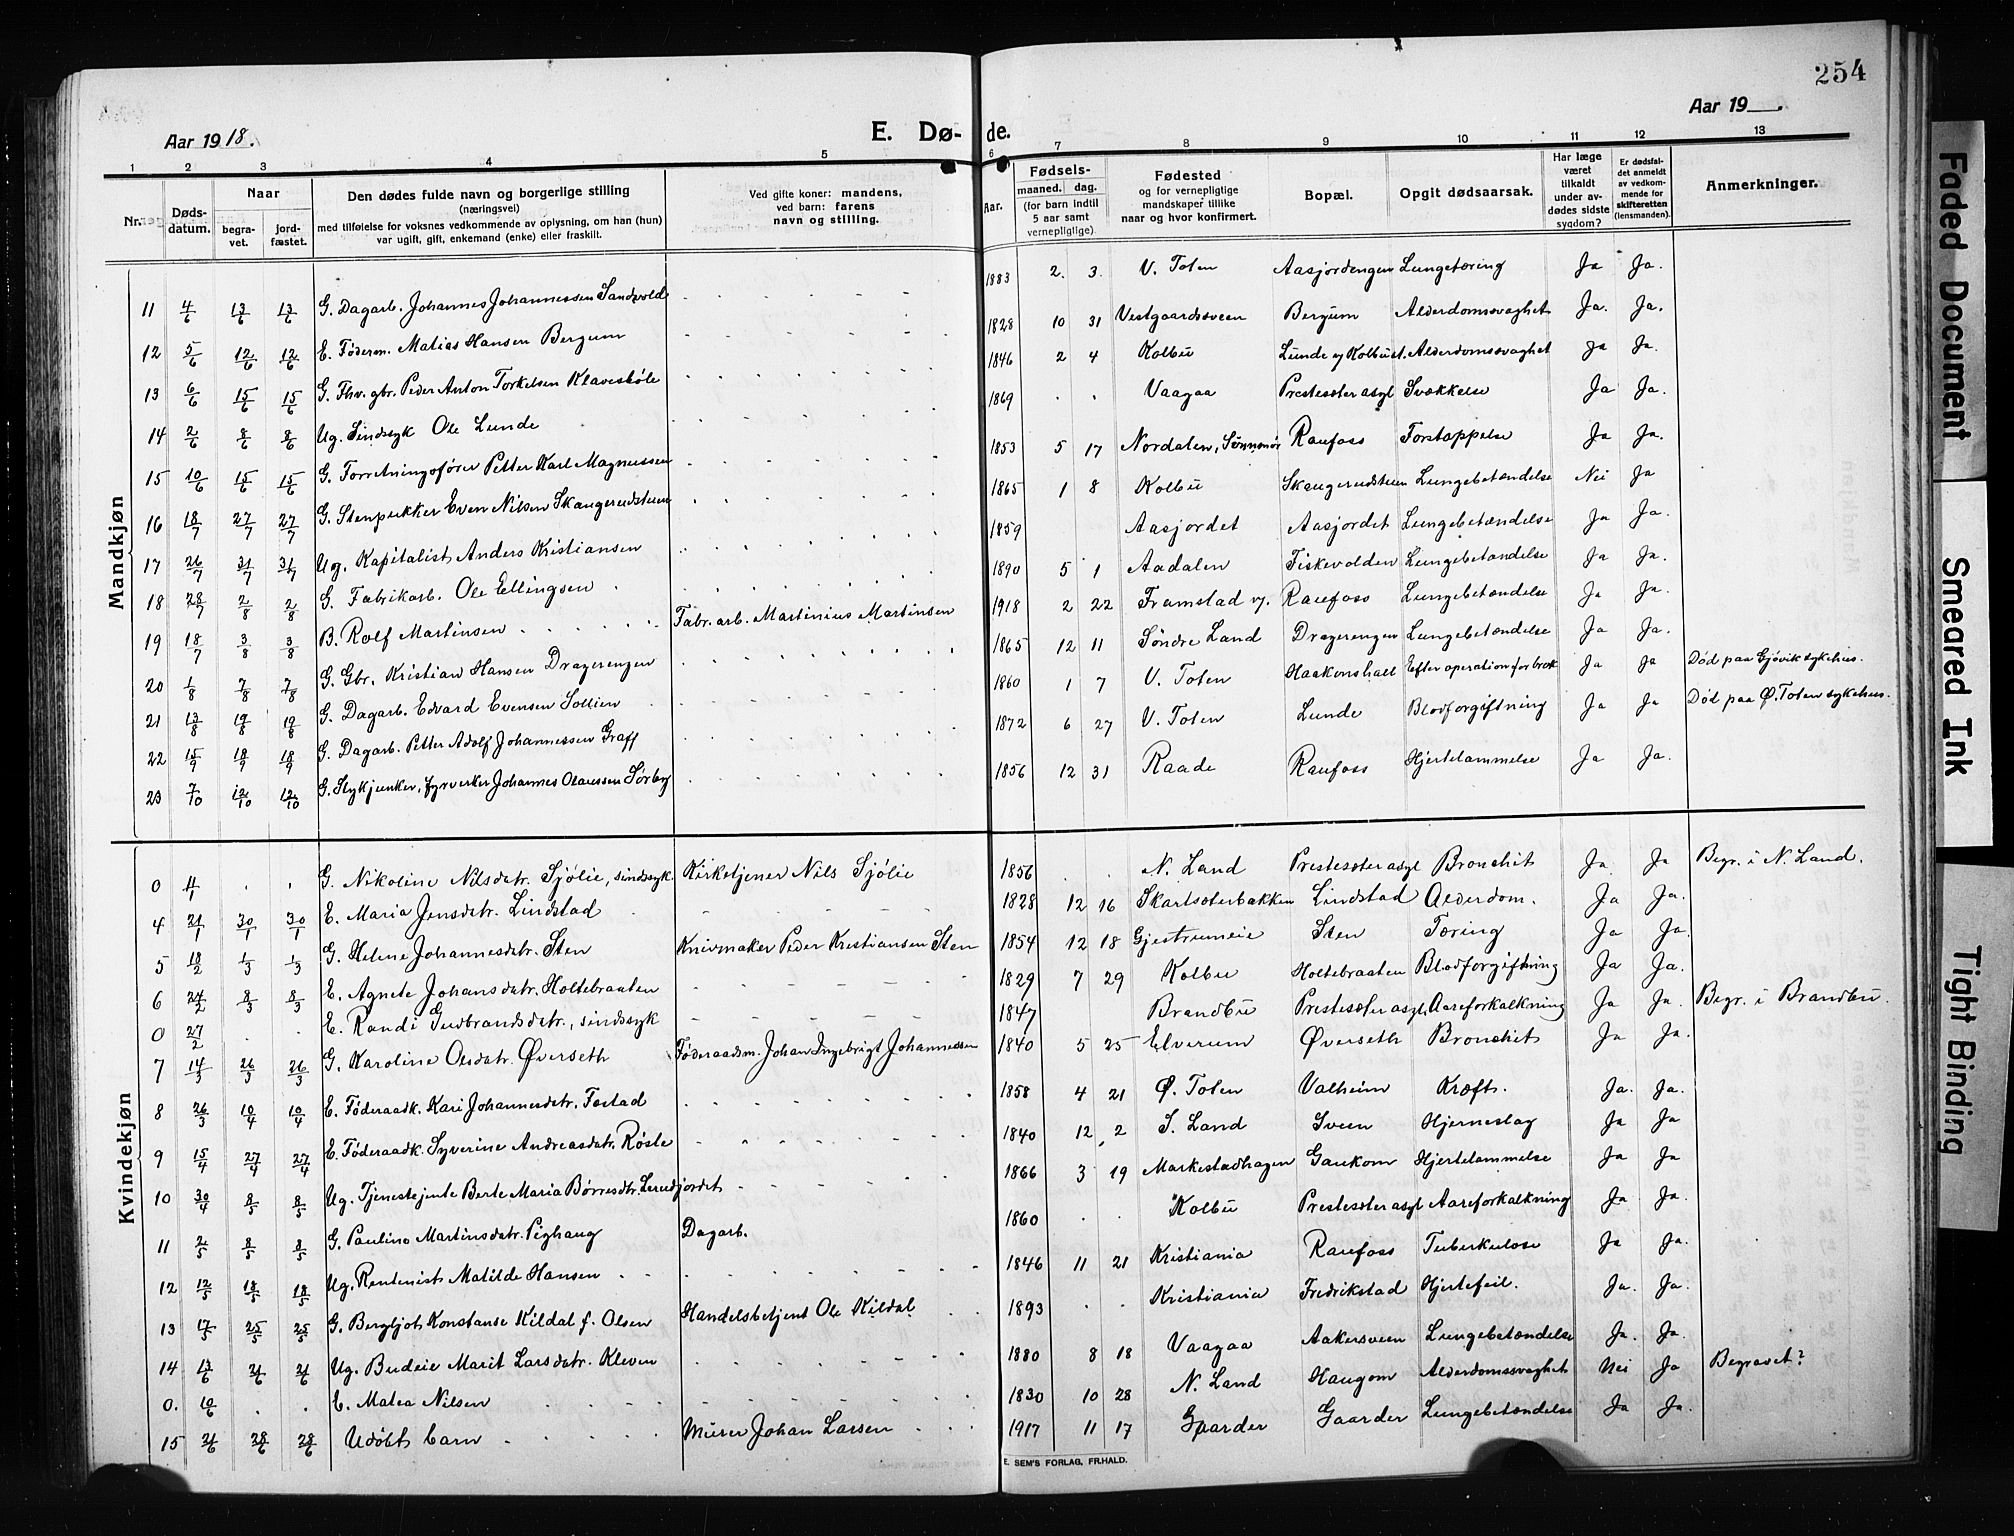 254
Aar 1918.
E. Dø-
de.
Aar 19 .
1 2 3 4 5 6 7 8 9 10 11 12 13
Nr. Døds-datum. Naar begra-vet. jord-fæstet. Den dødes fulde navn og borgerlige stilling (næringsvei) med tilføielse for voksnes vedkommende av oplysning, om han (hun) var ugift, gift, enkemand (enke) eller fraskilt. Ved gifte koner: mandens, ved barn: farens navn og stilling. Aar. Fødsels- maaned. dag. (for barn indtil 5 aar samt vernepligtige) Fødested og for vernepligtige mandskaper tillike naar og hvor konfirmert. Bopæl. Opgit dødsaarsak. Har læge været tilkaldt under av-dødes sidste sygdom? Er dødsfal-det anmeldt av vedkom-mende for skifteretten (lensmanden). Anmerkninger.
Mandkjøn
11 4/6 13/6 13/6 G. Dagarb. Johannes Johannessen Sandvold 1883 2. 3. V. Toten Aasjordengen Lungetæring Ja Ja.
12 5/6 12/6 12/6 E. Føderm. Matias Hansen Bergum 1828 10 31 Vestgaardssveen Bergum Alderdomssvaghet Ja. Ja.
13 6/6 15/6 15/6 G. Fhv. gbr. Peder Anton Torkelsen Klavesbøle 1846 2 4 Kolbu Lunde Alderdomssvaghet Ja Ja.
14 2/6 8/6 8/6 Ug. Sindssyk Ole Lunde 1869 Vaagaa Prestesæter asyl Svækkelse Ja Ja.
15 10/6 15/6 15/6 G. Forretningsfører Petter Karl Magnussen 1853 5 17 Nordalen, Sønnmør Raufoss Forstoppelse Ja Ja.
16 18/7 27/7 27/7 G. Stenpukker Even Nilsen Skaugerudstuen 1865 1 8 Kolbu Skaugerudstuen Lungebetændelse Nei Ja
17 26/7 31/7 31/7 Ug. Kapitalist Anders Kristiansen 1859 Aasjordet Aasjordet Lungebetændelse Ja Ja.
18 28/7 2/8 2/8 G. Fabrikarb. Ole Ellingsen 1890 5 1 Aadalen Fiskevolden Lungebetændelse Ja Ja.
19 18/7 3/8 3/8 B. Rolf Martinsen Fabr. arb. Martinius Martinsen 1918 2 22 Framstad v. Raufoss Lungebetændelse Ja Ja.
20 1/8 7/8 7/8 G. Gbr. Kristian Hansen Dragerengen 1865 12 11 Søndre Land Dragerengen Lungebetændelse Ja Ja.
21 13/8 19/8 19/8 G. Dagarb. Edvard Evensen Sollien 1860 1 7 V. Toten Haakonshall Efter operation for brok Ja Ja Død paa Gjøvik sykehus.
22 15/9 18/9 18/9 G. Dagarb. Petter Adolf Johannessen Graff 1872 6 27 V. Toten Lunde Blodforgiftning Ja Ja Død paa Ø. Toten sykehus.
23 7/10 12/10 12/10 G. Stykjunker, fyrverker Johannes Olaussen Sørby 1856 12 31 Raade Raufoss Hjertelammelse Ja Ja.
Kvindekjøn
0 4/1 G. Nikoline Nilsdatr. Sjølie, sindssyk. Kirketjener Nils Sjølie 1856 N. Land Prestesæter asyl Bronchit Ja. Ja Begr. i N. Land.
4 21/1 30/1 30/1 E. Maria Jensdatr. Lindstad 1828 12 16 Skartsæterbakken Lindstad Alderdom. Ja Ja.
5 18/2 1/3 1/3 G. Helene Johannesdatr. Sten Knivmaker Peder Kristiansen Sten 1854 12 18 Gjestrumeie Sten Tæring Ja Ja.
6 24/2 8/3 8/3 E. Agnete Johansdatr. Holtebraaten 1829 7 29 Kolbu Holtebraaten Blodforgiftning Ja Ja.
0 27/2 E. Randi Gudbrandsdatr., sindssyk 1847 Brandbu Prestesæter asyl Aareforkalkning Ja Ja. Begr. i Brandbu.
7 14/3 26/3 26/3 G. Karoline Olsdatr. Øverseth Føderaadsm. Johan Ingebrigt Johannessen 1840 5 25 Elverum Øverseth Bronchit Ja Ja.
8 26/3 10/4 10/4 E. Føderaadk. Kari Johannesdatr. Fostad 1858 4 21 Ø. Toten Valheim Kræft. Ja. Ja.
9 15/4 27/4 27/4 E. Føderaadk. Syverine Andreasdatr. Røsle 1840 12 2 S. Land Sveen Hjerneslag Ja Ja
10 30/4 8/5 8/5 Ug. Tjenestejente Berte Maria Børresdtr. Lerudjordet 1866 3 19 Markestadhagen Gaukom Hjertelammelse Ja Ja
11 2/5 8/5 8/5 G. Pauline Martinsdatr. Pighaug Dagarb. 1860 Kolbu Prestesæter asyl Aareforkalkning Ja Ja.
12 12/5 18/5 18/5 Ug. Rentenist Matilde Hansen 1846 11 21 Kristiania Raufoss Tuberkulose Ja Ja.
13 17/5 25/5 25/5 G. Bergljot Konstanse Kildal f. Olsen Handelsbetjent Ole Kildal 1893 Kristiania Fredrikstad Hjertefeil. Ja. Ja.
14 13/6 21/6 21/6 Ug. Budeie Marit Larsdatr. Kleven 1880 8 18 Vaagaa Aakersveen Lungebetændelse Ja. Ja.
0. 10/6 E. Matea Nilsen 1830 10 28 N. Land Haugom Alderdomssvaghet Nei Ja Begravet?
15 21/6 28/6 28/6 Udøbt barn Murer Johan Larsen 1917 11 17 Gaarder Gaarder Lungebetændelse Ja Ja.
E. SEM'S FORLAG, FR.HALD.
Faded Document
Smeared Ink
Tight Binding